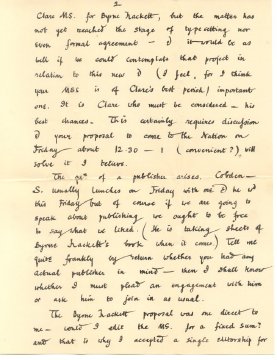 2
Clare MS. for Byrne Hackett, but the matter has
not yet reached the stage of typesetting nor
even formal agreement – & it would be as
well if we could contemplate that project in
relation to this new & (I feel, for I think
your MSS is of Clare's best period) important
one. It is Clare who must be considered – his
best chances. This certainly requires discussion
& your proposal to come to the Nation on
Friday about 12.30 – 1 (convenient?), will
solve it I believe.
The qn. of a publisher arises. Cobden-
S. usually lunches on Friday with me & he wd
this Friday but of course if we are going to
speak about publishing we ought to be free
to say what we liked. (He is taking sheets of
Byrne Hackett's book when it comes) Tell me
quite frankly by return whether you had any
actual publisher in mind – then I shall know
whether I must plead an engagement with him
or ask him to join in as usual.
The Byrne Hackett proposal was one direct to
me – could I edit the MS. for a fixed sum?
and that is why I accepted a single editorship for